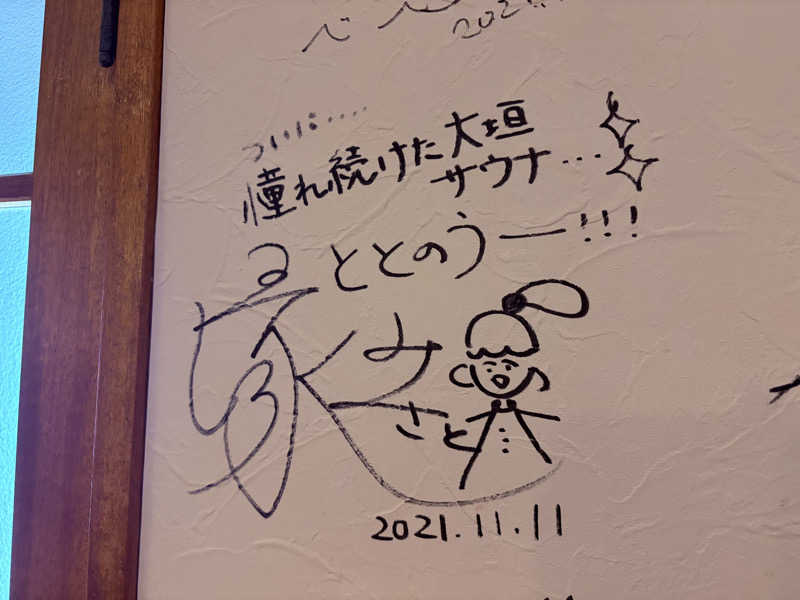 ついに....
憧れ続けた大垣
サウナ...
ととのうー!!!
み
さと
2021.11.11